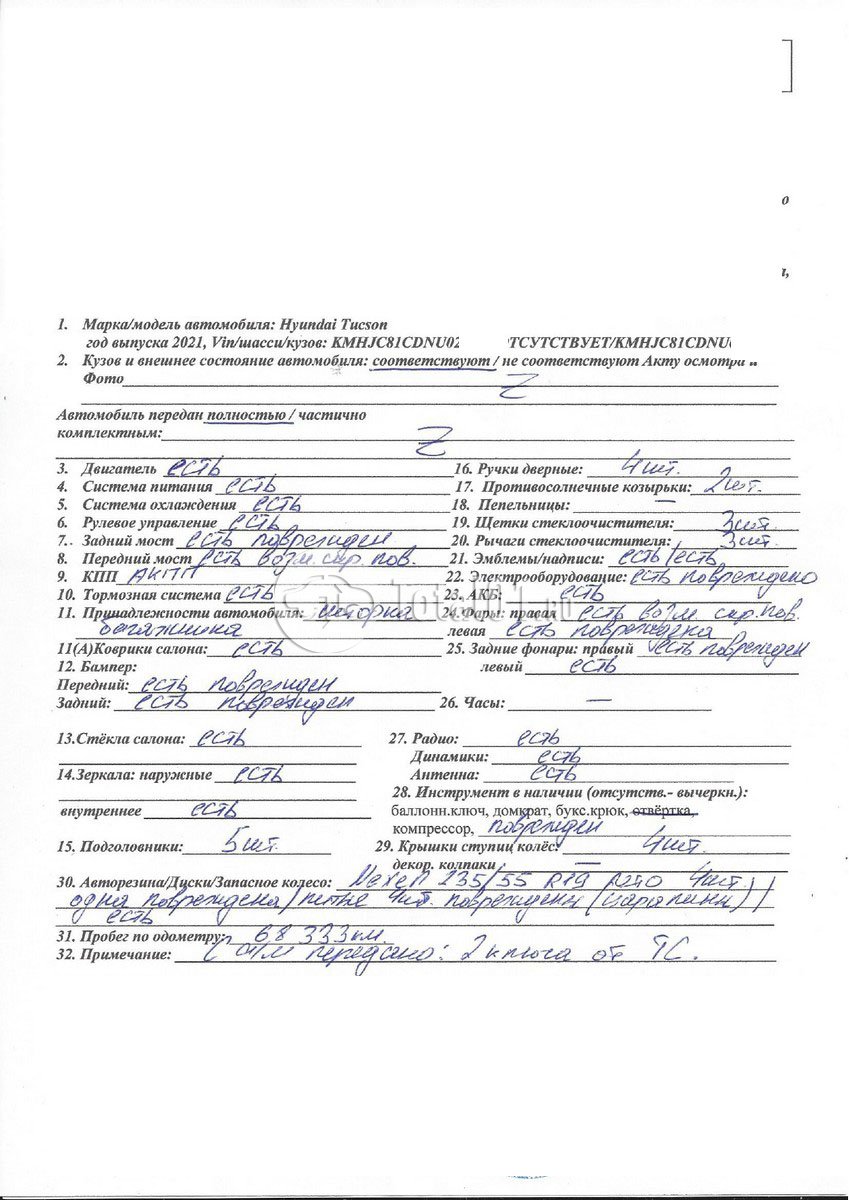 о
ı,
1. Марка/модель автомобиля: Hyundai Tucson
год выпуска 2021, Vin/шасси/кузов: KMHJC81CDNU02 ТСУТСТВУЕТ/KMHJC81CDNU
2. Кузов и внешнее состояние автомобиля: соответствуют / не соответствуют Акту осмотра и
Фото Z
Автомобиль передан полностью / частично
комплектным: Z
3. Двигатель есть
16. Ручки дверные: 4 шт.
4. Система питания есть
17. Противосолнечные козырьки: 2 шт.
5. Система охлаждения есть
18. Пепельницы: —
6. Рулевое управление есть
19. Щетки стеклоочистителя: 3 шт.
7. Задний мост есть поврежден
20. Рычаги стеклоочистителя: 3 шт.
8. Передний мост есть возм. скр. пов.
21. Эмблемы/надписи: есть/есть
9. КПП АКПП
22. Электрооборудование: есть повреждено
10. Тормозная система есть
23. АКБ: есть
11. Принадлежности автомобиля: шторка
багажника
24. Фары: правая есть возм. скр. пов.
левая есть повреждена
11(А)Коврики салона: есть
25. Задние фонари: правый есть поврежден
левый есть
12. Бампер:
Передний: есть поврежден
Задний: есть поврежден
26. Часы: —
13.Стёкла салона: есть
27. Радио: есть
Динамики: есть
14.Зеркала: наружные есть
Антенна: есть
28. Инструмент в наличии (отсутств.- вычеркн.):
внутреннее есть
баллонн.ключ, домкрат, букс.крюк, отвёртка,
компрессор, поврежден
15. Подголовники: 5 шт.
29. Крышки ступиц колёс: 4 шт.
декор. колпаки —
30. Авторезина/Диски/Запасное колесо: Nexen 235/55 R19 4 шт.)
одна повреждена/литые 4 шт. повреждены (царапины)/
есть
31. Пробег по одометру: 68 333 км.
32. Примечание: С а/м передано: 2 ключа от ТС.